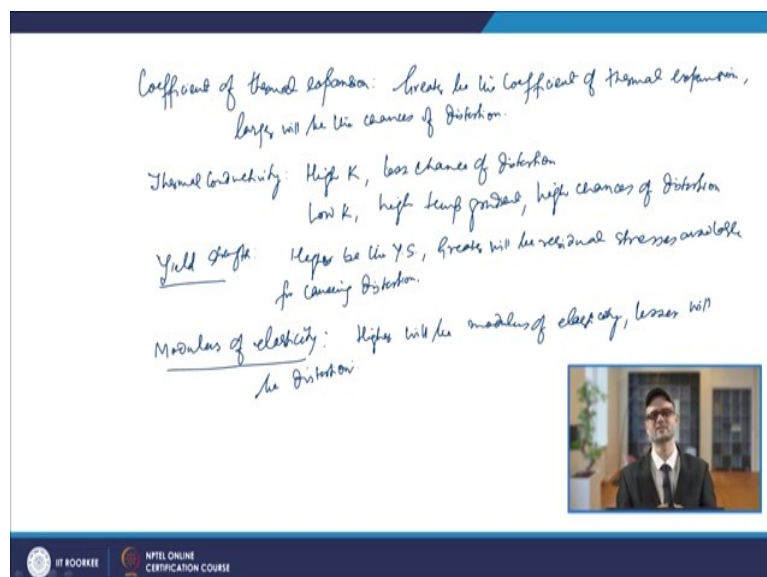 Coefficient of thermal expansion: Greater be the coefficient of thermal expansion,
larger will be the chances of distortion.
Thermal conductivity: High K, less chance of distortion
Low K, high temp gradient, high chances of distortion
Yield strength: Higher be the Y.S., Greater will be residual stresses available
for causing distortion.
Modulus of elasticity: Higher will be modulus of elasticity, lesser will
be distortion.
IIT ROORKEE
NPTEL ONLINE
CERTIFICATION COURSE